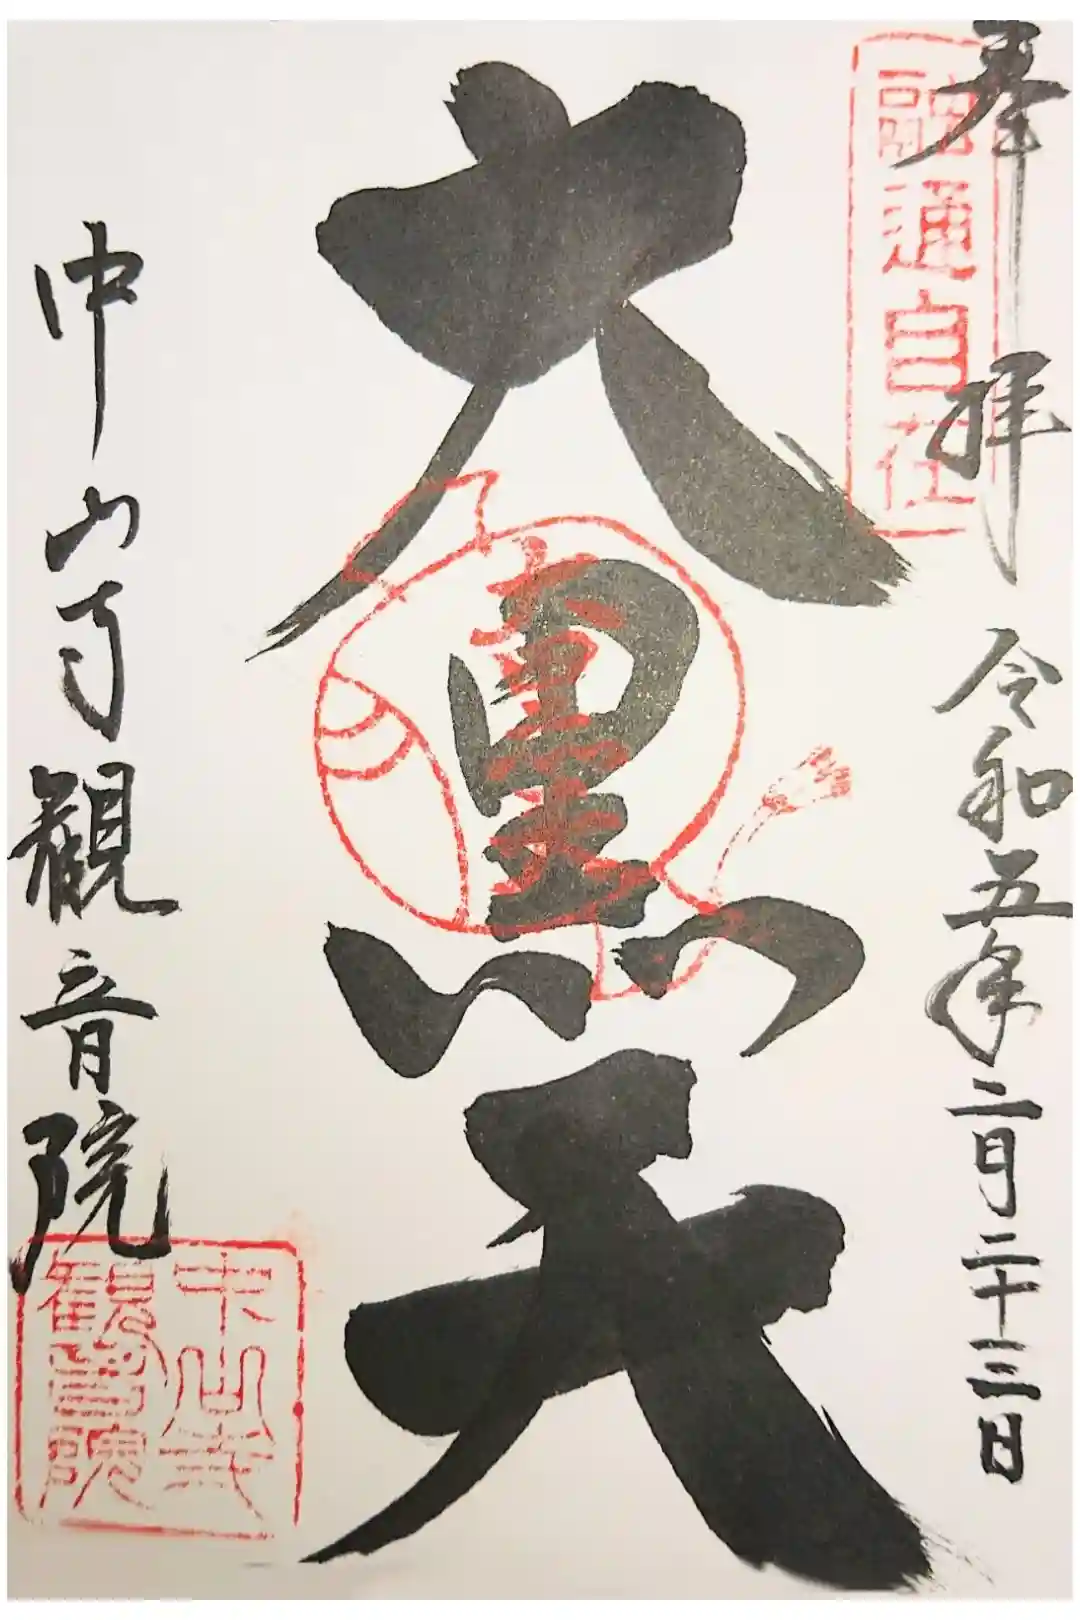 奉拝
令和五年二月二十三日
融通自在
大黒天
中山寺観音院
中山寺
観音院